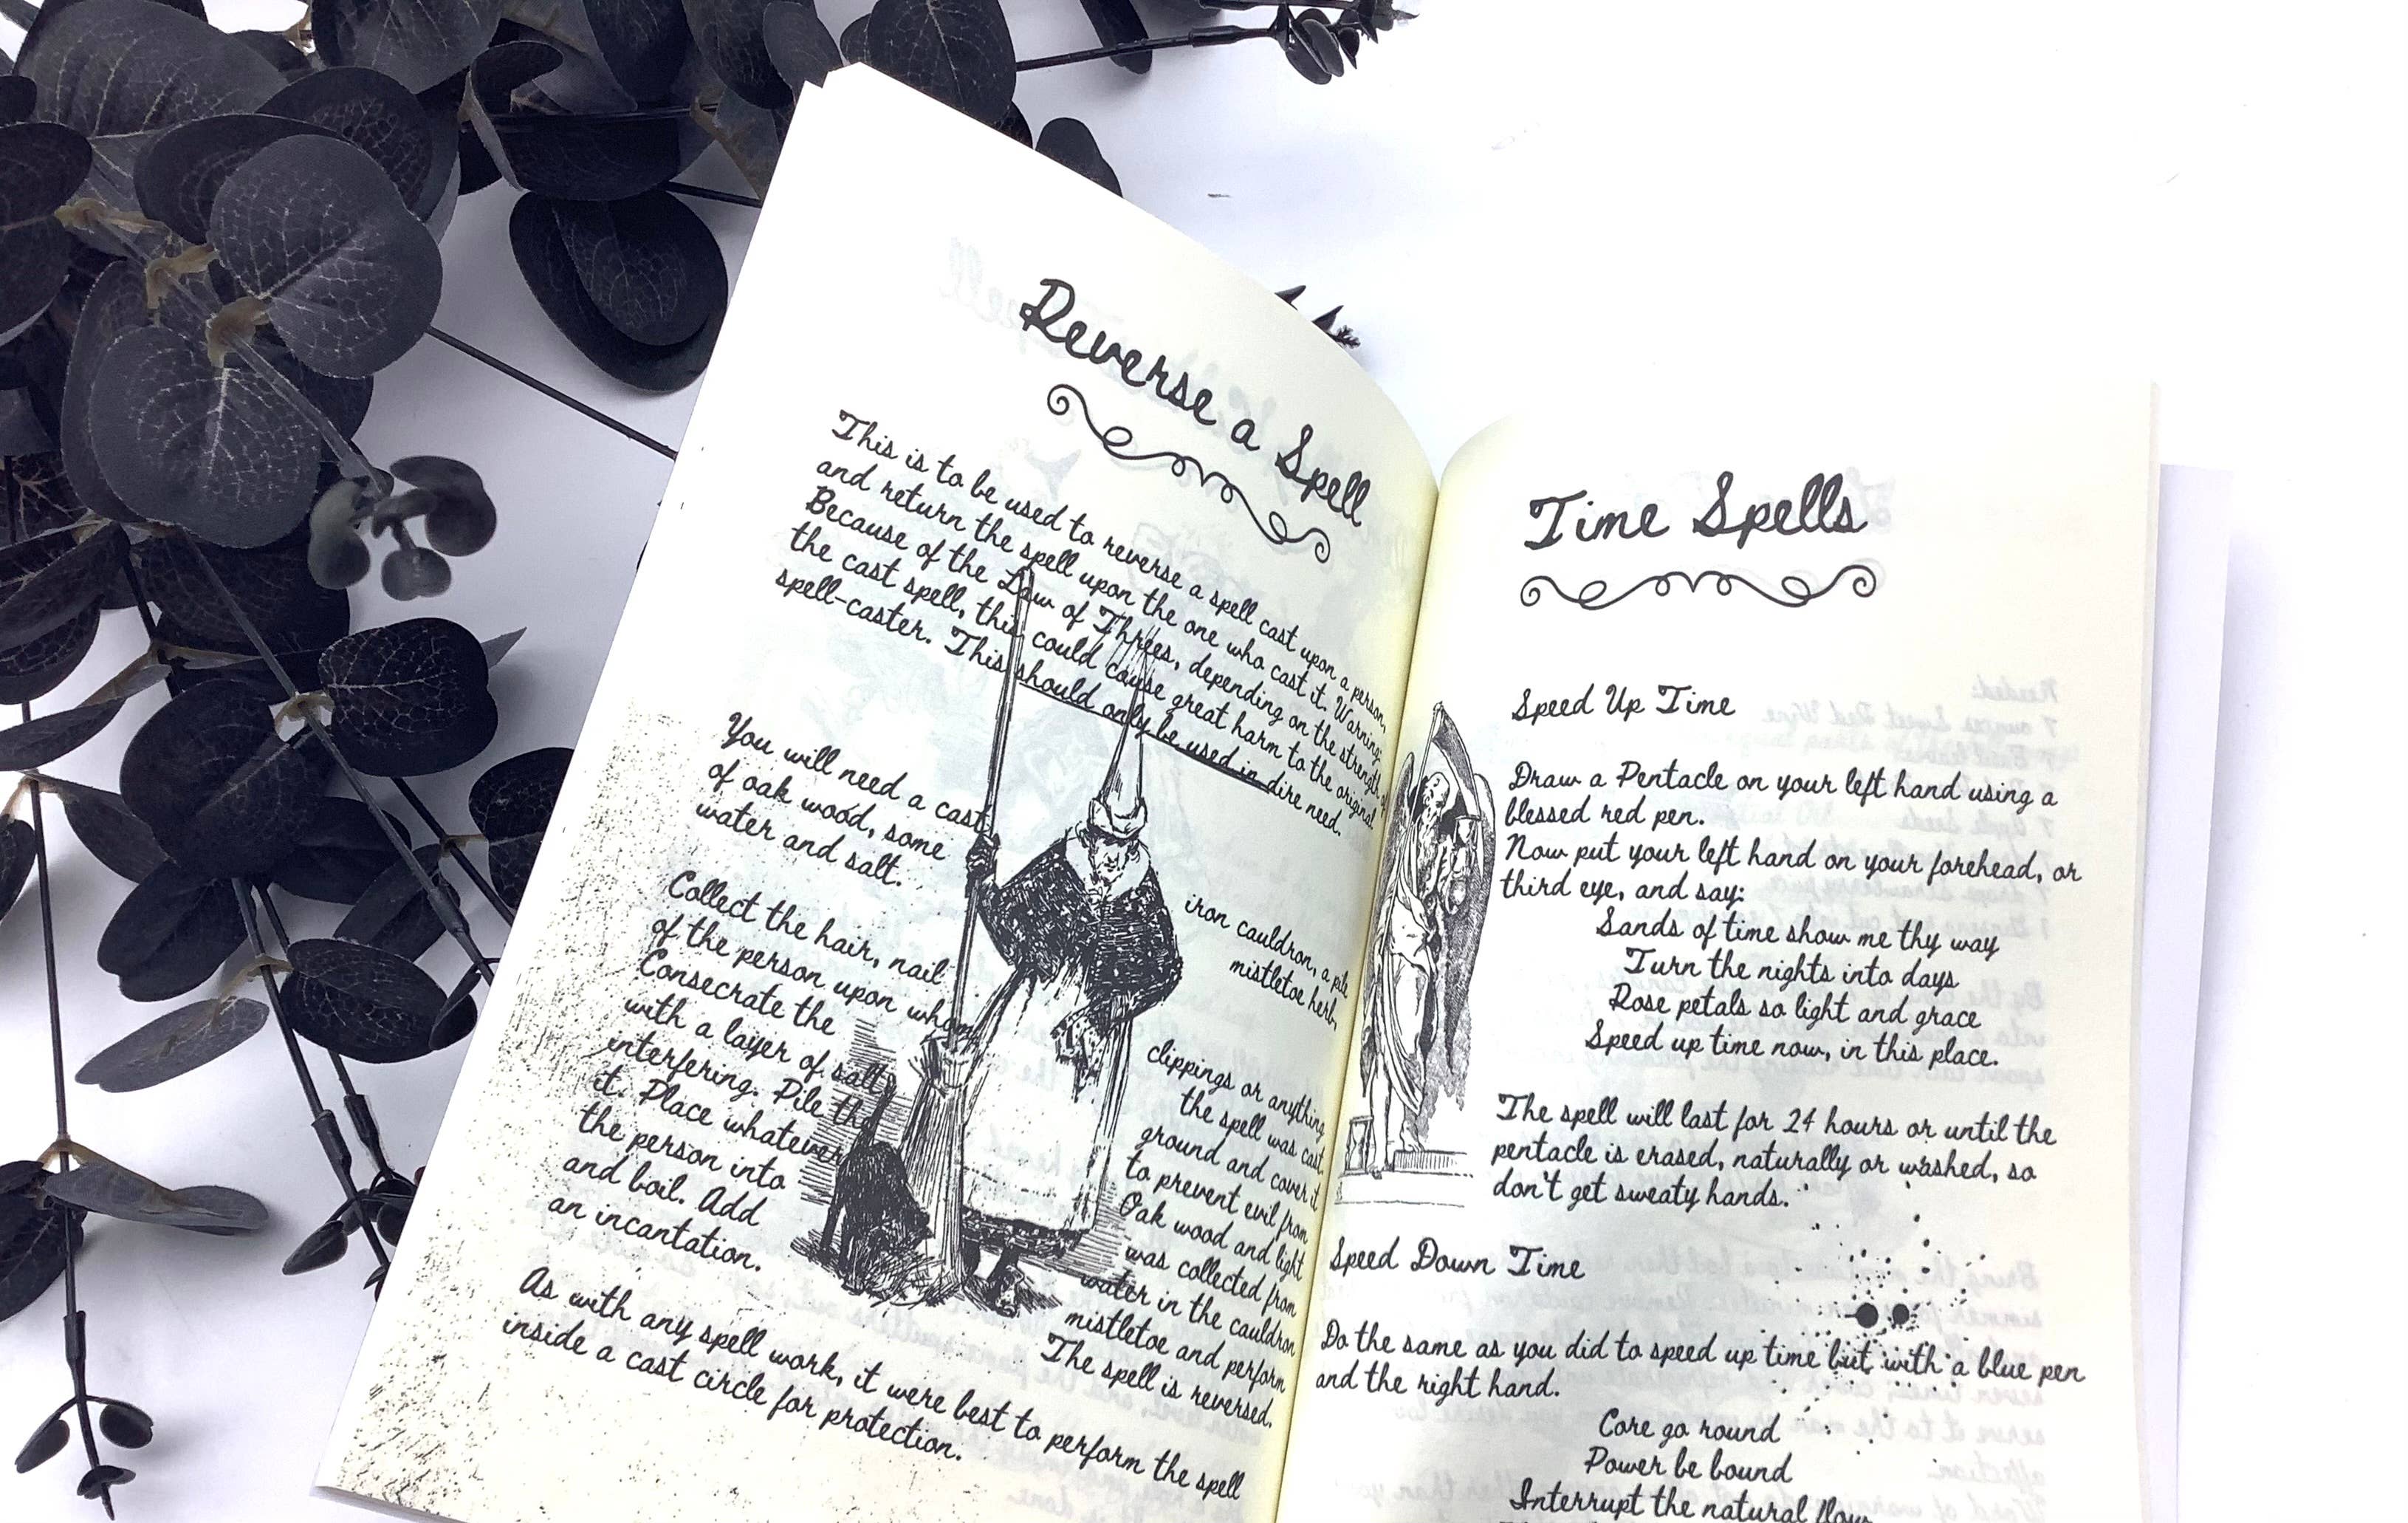 Reverse a Spell
This is to be used to reverse a spell cast upon a person,
and return the spell upon the one who cast it. Warning:
Because of the Law of Threes, depending on the strength of
the cast spell, this could cause great harm to the original
spell-caster. This should only be used in dire need.
You will need a cast iron cauldron, a pile
of oak wood, some mistletoe herb,
water and salt.
Collect the hair, nail clippings or anything
of the person upon whom the spell was cast.
Consecrate the ground and cover it
with a layer of salt to prevent evil from
interfering. Pile the Oak wood and light
it. Place whatever was collected from
the person into water in the cauldron
and boil. Add mistletoe and perform
an incantation. The spell is reversed.
As with any spell work, it were best to perform the spell
inside a cast circle for protection.
Time Spells
Speed Up Time
Draw a Pentacle on your left hand using a
blessed red pen.
Now put your left hand on your forehead, or
third eye, and say:
Sands of time show me thy way
Turn the nights into days
Rose petals so light and grace
Speed up time now, in this place.
The spell will last for 24 hours or until the
pentacle is erased, naturally or washed, so
don't get sweaty hands.
Speed Down Time
Do the same as you did to speed up time but with a blue pen
and the right hand.
Core go round
Power be bound
Interrupt the natural flow